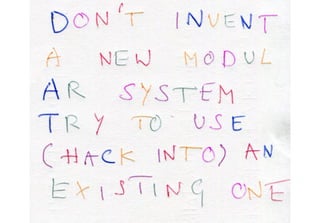 DON'T INVENT
A NEW MODUL
AR SYSTEM
TRY TO USE
(HACK INTO) AN
EXISTING ONE